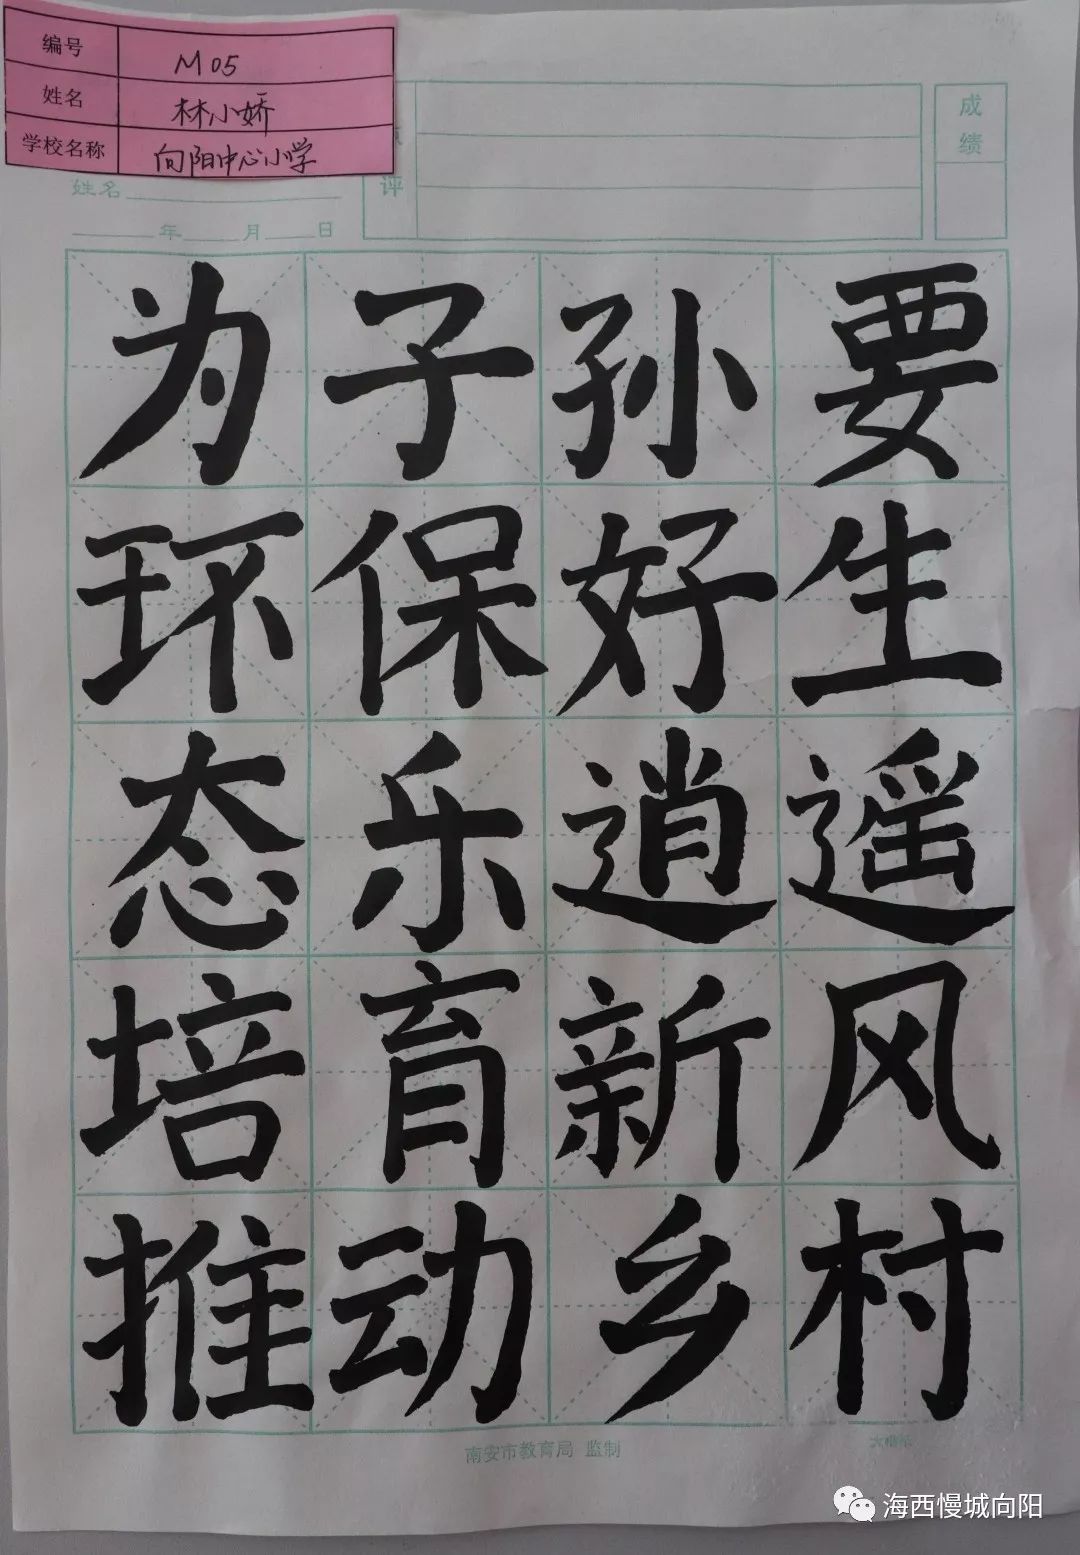 编号 M05
姓名 林小娇
学校名称 向阳中心小学
评
成绩
姓名
年 月 日
为子孙要
环保好生
态乐逍遥
培育新风
推动乡村
南安市教育局 监制
海西慢城向阳